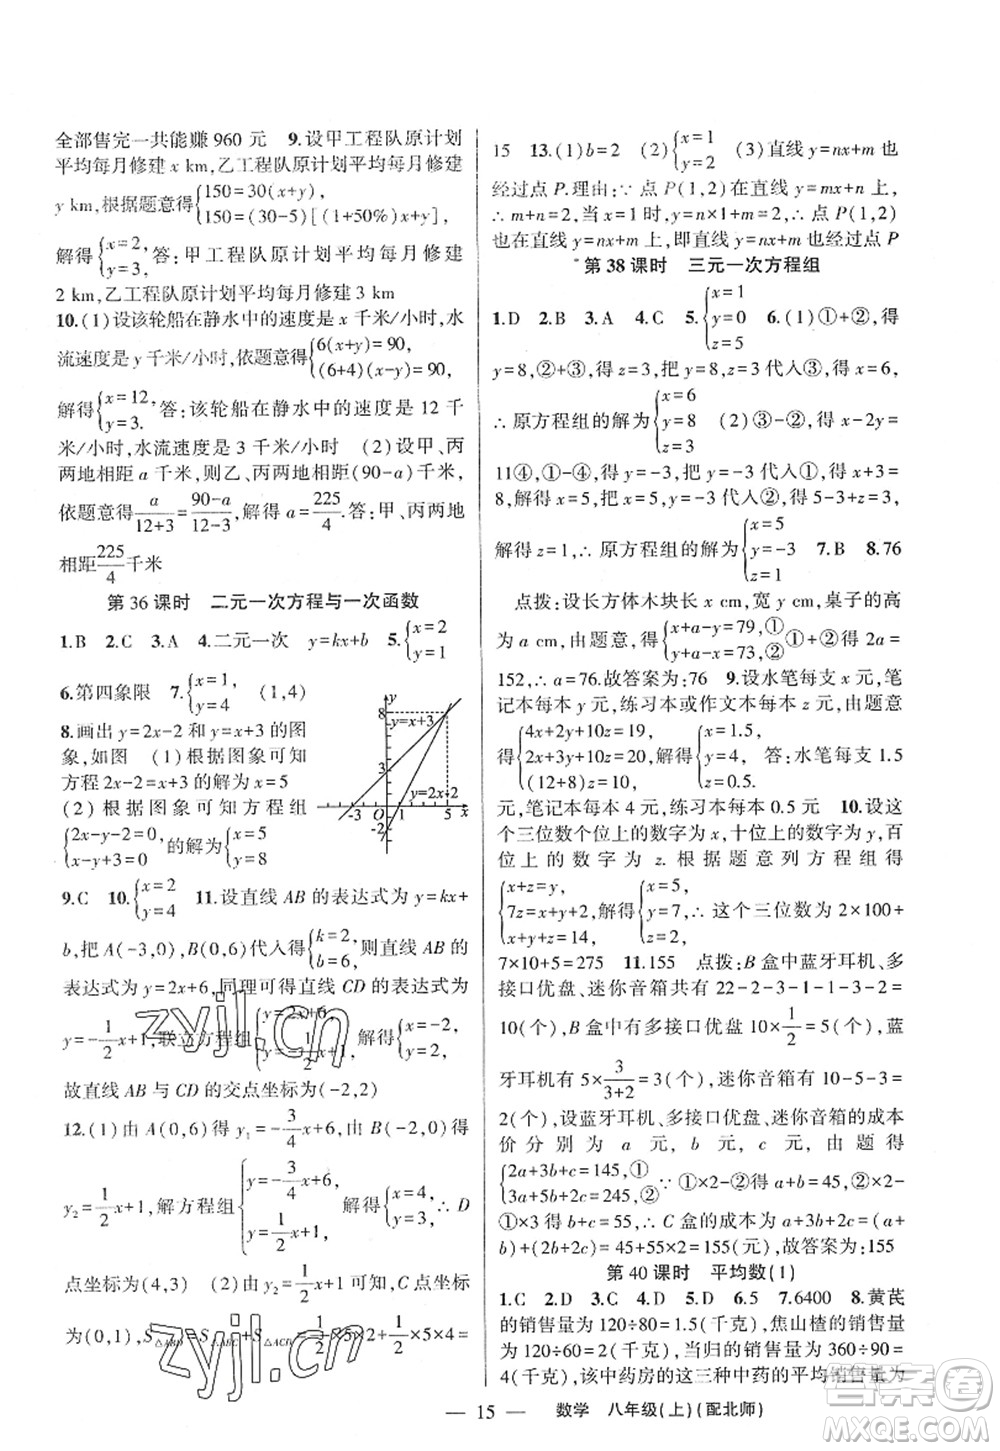 全部售完一共能赚 960 元　9.设甲工程队原计划
平均每月修建 x km,乙工程队原计划平均每月修建
y km,根据题意得{150=30(x+y)
150=(30-5)[(1+50%)x+y]
解得{x=2, y=3. 答:甲工程队原计划平均每月修建
2 km,乙工程队原计划平均每月修建 3 km
10.(1)设该轮船在静水中的速度是 x 千米/小时,水
流速度是 y 千米/小时,依题意得{6(x+y)=90,
(6+4)(x-y)=90,
解得{x=12, y=3. 答:该轮船在静水中的速度是 12 千
米/小时,水流速度是 3 千米/小时　(2)设甲、丙
两地相距 a 千米,则乙、丙两地相距(90-a)千米,
依题意得a/(12+3)=(90-a)/(12-3),解得 a=225/4. 答:甲、丙两地
相距225/4千米
第 36 课时　二元一次方程与一次函数
1.B　2.C　3.A　4.二元一次　y=kx+b　5.{x=2 y=1
6.第四象限　7.{x=1, y=4　(1,4)
8.画出 y=2x-2 和 y=x+3 的图
象,如图　(1)根据图象可知
方程 2x-2=x+3 的解为 x=5
(2)根据图象可知方程组
{2x-y-2=0, x-y+3=0 的解为{x=5 y=8
y
8
y=x+3
3
y=2x-2
-3
O
1
5
x
-2
9.C　10.{x=2 y=4　11.设直线 AB 的表达式为 y=kx+
b,把 A(-3,0),B(0,6)代入得{k=2, b=6, 则直线 AB 的
的表达式为 y=2x+6,同理可得直线 CD 的表达式为
y=-1/2x+1,联立方程组{y=2x+6, y=-1/2x+1, 解得{x=-2, y=2,
故直线 AB 与 CD 的交点坐标为(-2,2)
12.(1)由 A(0,6)得 y₁=-3/4x+6,由 B(-2,0)得
y₂=1/2x+1,解方程组{y=-3/4x+6, y=1/2x+1, 解得{x=4, y=3 ∴D
点坐标为(4,3)　(2)由 y₂=1/2x+1 可知,C 点坐标
为(0,1),S△ABD=S△ABC+S△ACD=1/2×5×2+1/2×5×4=
15　13.(1)b=2　(2){x=1 y=2　(3)直线 y=nx+m 也
经过点 P.理由:∵点 P(1,2)在直线 y=mx+n 上,
∴m+n=2,当 x=1 时,y=n×1+m=2,∴点 P(1,2)
也在直线 y=nx+m 上,即直线 y=nx+m 也经过点 P
第 38 课时　三元一次方程组
1.D　2.B　3.A　4.C　5.{x=1 y=0 z=5　6.(1)①+②,得
y=8,②+③,得 z=3,把 y=8,z=3 代入③,得 x=6,
∴原方程组的解为{x=6 y=8 z=3　(2)③-②,得 x-2y=
11④,①-④,得 y=-3,把 y=-3 代入①,得 x+3=
8,解得 x=5,把 x=5,y=-3 代入②,得 5-3+z=3,
解得 z=1,∴原方程组的解为{x=5 y=-3 z=1　7.B　8.76
点拨:设长方体木块长 x cm,宽 y cm,桌子的高
为 a cm,由题意,得{x+a-y=79,① y+a-x=73,② ①+②,得 2a=
152,∴a=76.故答案为:76　9.设水笔每支 x 元,笔
记本每本 y 元,练习本或作文本每本 z 元,由题意
得{4x+2y+10z=19, 2x+3y+10z=20, (12+8)z=10, 解得{x=1.5, y=4, z=0.5. 答:水笔每支 1.5
元,笔记本每本 4 元,练习本每本 0.5 元　10.设这
个三位数个位上的数字为 x,十位上的数字为 y,百
位上的数字为 z.根据题意列方程组得
{x+z=y, 7z=x+y+2, x+y+z=14, 解得{x=5, y=7, z=2, ∴这个三位数为 2×100+
7×10+5=275　11.155　点拨:B 盒中蓝牙耳机、多
接口优盘、迷你音箱共有 22-2-3-1-1-3-2=
10(个),B 盒中有多接口优盘10×1/2=5(个),蓝
牙耳机有 5×3/(3+2)=3(个),迷你音箱有 10-5-3=
2(个),设蓝牙耳机、多接口优盘、迷你音箱的成本
价分别为 a 元,b 元,c 元,由题得
{2a+3b+c=145,① 3a+5b+2c=245,② ∵①×2-②得 a+b=45,②×2-
①×3 得 b+c=55,∴C 盒的成本为 a+3b+2c=(a+
b)+(2b+2c)=45+55×2=155(元),故答案为:155
第 40 课时　平均数(1)
1.C　2.B　3.C　4.D　5.D　6.5　7.6400　8.黄芪
的销售量为 120÷80=1.5(千克),焦山楂的销售量
为 120÷60=2(千克),当归的销售量为 360÷90=
4(千克),该中药房的这三种中药的平均销售量为
— 15 —　数学　八年级(上)(配北师)
zyjl.cn
zyjl.cn
答案圈
MXQE.COM